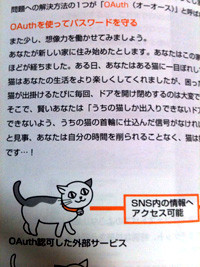 問題への解決方法の1つが「OAuth（オーオース）」と呼ば
OAuthを使ってパスワードを守る
また少し、想像力を働かせてみましょう。
あなたが新しい家に住み始めたとします。あなたはこの家
ほどが経ちました。ある日、あなたはある猫に一目ぼれし
猫はあなたの生活をより楽しくしてくれましたが、困った
が出掛けるたびに毎回、ドアを開け閉めするのは大変で
そこで、賢いあなたは「うちの猫しか出入りできないド
できないよう、うちの猫の首輪に仕込んだ信号がなけれ
と見事、あなたは自分の時間を削られることなく、猫は
です…！
SNS内の情報へ
アクセス可能
OAuth認可した外部サービス